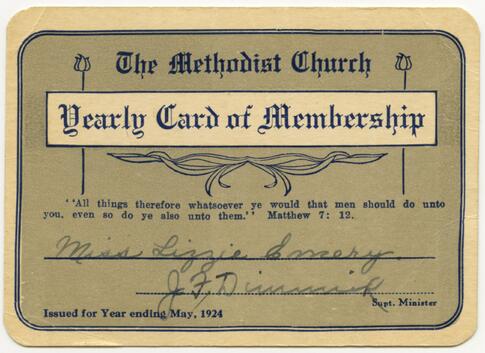 The Methodist Church
Yearly Card of Membership
"All things therefore whatsoever ye would that men should do unto
you, even so do ye also unto them." Matthew 7: 12.
Miss Lizzie Emery.
J. F. Dimmick
Supt. Minister
Issued for Year ending May, 1924